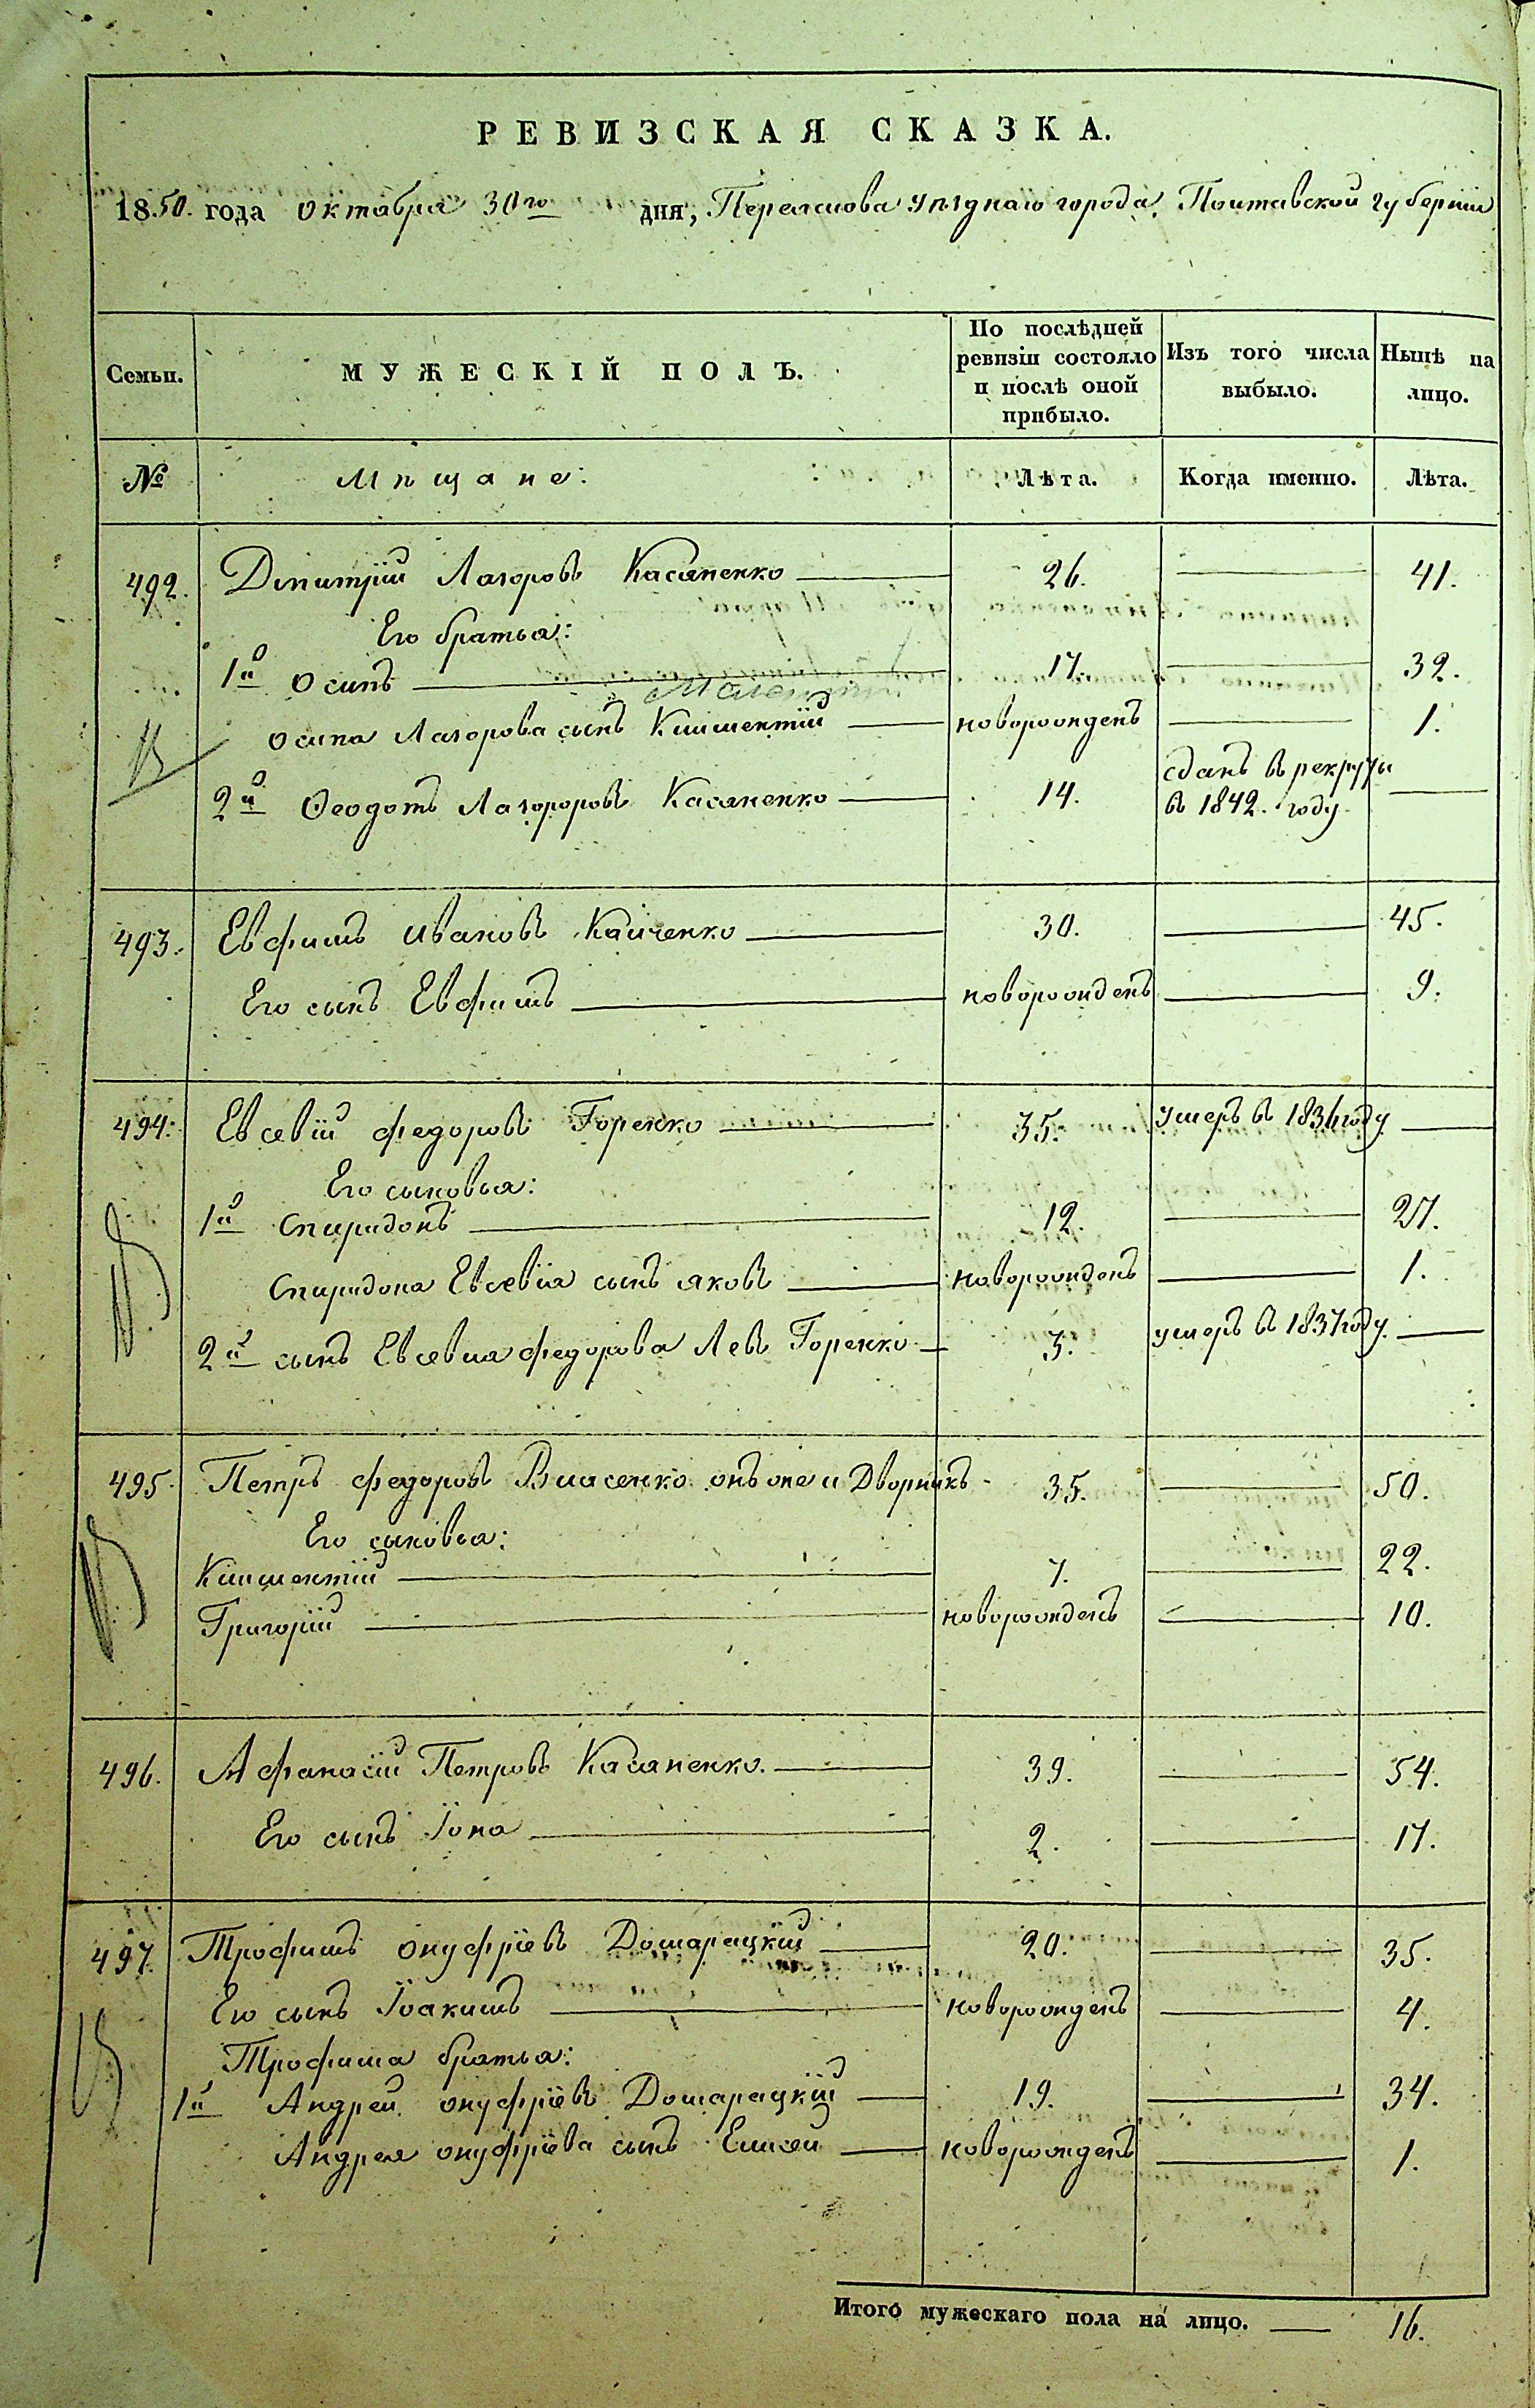 РЕВИЗСКАЯ СКАЗКА.
1850. года октября 30го дня, Переяслова уѣзднаго города, Полтавской губерніи
Семьи. МУЖЕСКІЙ ПОЛЪ. По послѣдней ревизіи состояло и послѣ оной прибыло. Изъ того числа выбыло. Нынѣ на лицо.
№ Мѣщане: Лѣта. Когда именно. Лѣта.
492. Дмитрій Лазоровъ Касяненко 26. 41.
Его братья:
1й Осипъ 17. 32.
Осипа Лазорова сынъ Климентій новорожденъ 1.
2й Феодотъ Лазороровъ Касяненко 14. сданъ въ рекруты въ 1842. году
493. Евфимъ Ивановъ Кайченко 30. 45.
Его сынъ Евфимъ новорожденъ 9.
494. Евсевій Федоровъ Горенко 35. умеръ въ 1836 году
Его сыновья:
1й Спиридонъ 12. 27.
Спиридона Евсевія сынъ Яковъ новорожденъ 1.
2й сынъ Евсевия Федорова Левъ Горенко 3. умеръ въ 1837 году.
495. Петръ Федоровъ Власенко онъ же и Дворникъ 35. 50.
Его сыновья:
Климентій 7. 22.
Григорій новорожденъ 10.
496. Афанасій Петровъ Касяненко. 39. 54.
Его сынъ Іона 2. 17.
497. Трофимъ Онуфріевъ Домарацкій 20. 35.
Его сынъ Іоакимъ новорожденъ 4.
Трофима братья:
1й Андрей Онуфріевъ Домарацкій 19. 34.
Андрея Онуфріева сынъ Елисей новорожденъ 1.
Итого мужескаго пола на лицо. 16.